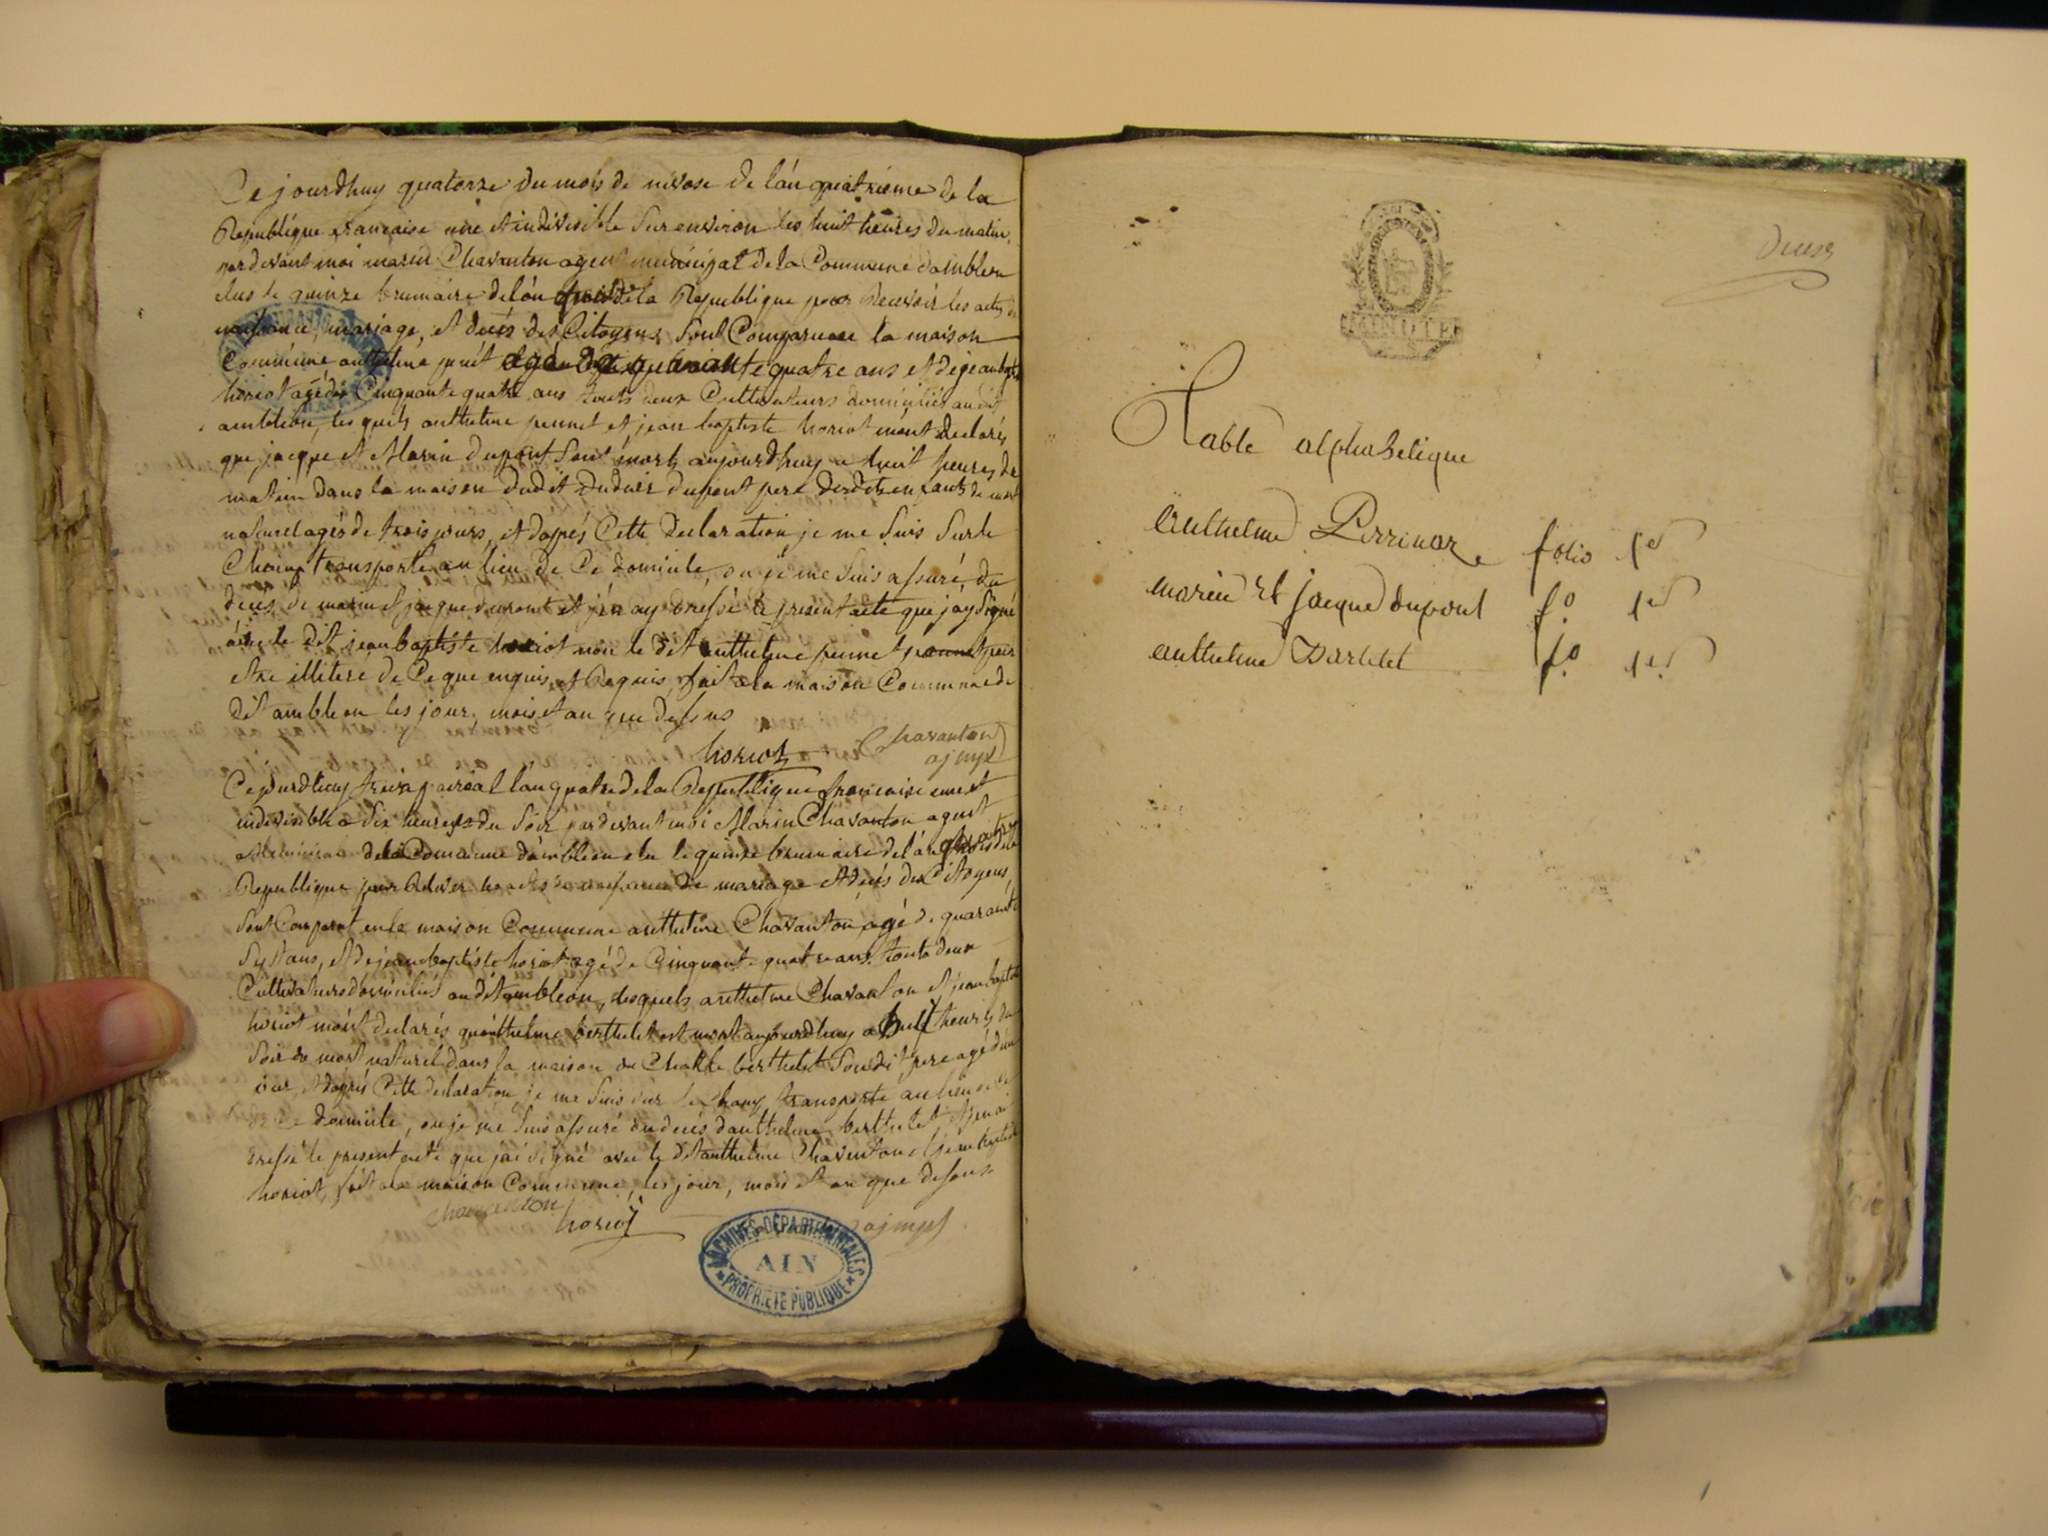 Ce jourdhuy quatorze du mois de nivose de l'an quatrieme de la
Republique francaise une et indivisible sur environ les huit heures du matin
par devant moi marin Chavanton agent municipal de la Commune dambleon
elus le quinze brumaire de l'an de la Republique pour Recevoir les actes de
naissance, mariage, et decés des Citoyens sont Comparu a la maison
Commune anthelme quatre ans et de jean bapte
horiot agé de Cinquante quatre ans touts deux Cultivateurs domiciliés au dit
ambleon, les quels anthelme pennet et jean baptiste horiot mont declarés
que jacque et Marin dupont sont morts aujourdhuy a huit heures de
matin dans la maison dudit dupont pere desdits enfants de mort
naturel agés de trois jours, et daprés Cette declaration je me suis sur le
Champ transporté au lieu de Ce domicile, ou je me suis assuré du
decés de marin et jacque dupont et j'en ay dressé le present acte que j'ay signé
avec le dit jean baptiste horiot non le dit anthelme pennet pour
etre illitere de Ce que enquis et Requis, fait a la maison Commune du
dit ambleon les jour, mois et an que dessus
horiot Chavanton
ajmpl
Ce jourdhuy prairial l'an quatre de la Republique francaise une et
indivisible a dix heures du soir par devant moi Marin Chavanton agent
de la Commune d'ambleon elu le quinze brumaire de l'an de la
Republique pour de mariage et decés des Citoyens,
sont Comparut en la maison Commune anthelme Chavanton agé de quarante
sept ans, et de jean baptiste horiot agé de Cinquante quatre ans touts deux
Cultivateurs domiciliés au dit ambleon, lesquels anthelme Chavanton et jean baptiste
horiot mont declarés qu'anthelme berthelet est mort aujourdhuy a huit heures du
soir de mort naturel dans la maison de berthelet sondit pere agé d'un
jour, et daprés Cette declaration je me suis sur le Champ transporté au lieu
de Ce domicile, ou je me suis assuré du decés danthelme berthelet et j'en ai
dressé le present acte que j'ai signé avec le dit anthelme Chavanton et jean baptiste
horiot, fait a la maison Commune, les jour, mois et an que dessus
Chavanton horiot ajmpl
ARCHIVES DÉPARTEMENTALES
AIN
PROPRIÉTÉ PUBLIQUE
MINUTE
deces
Table alphabetique
Anthelme Perrinaz folio 1er
marin et jacque dupont fo. 1er
anthelme Bartelet fo. 1er